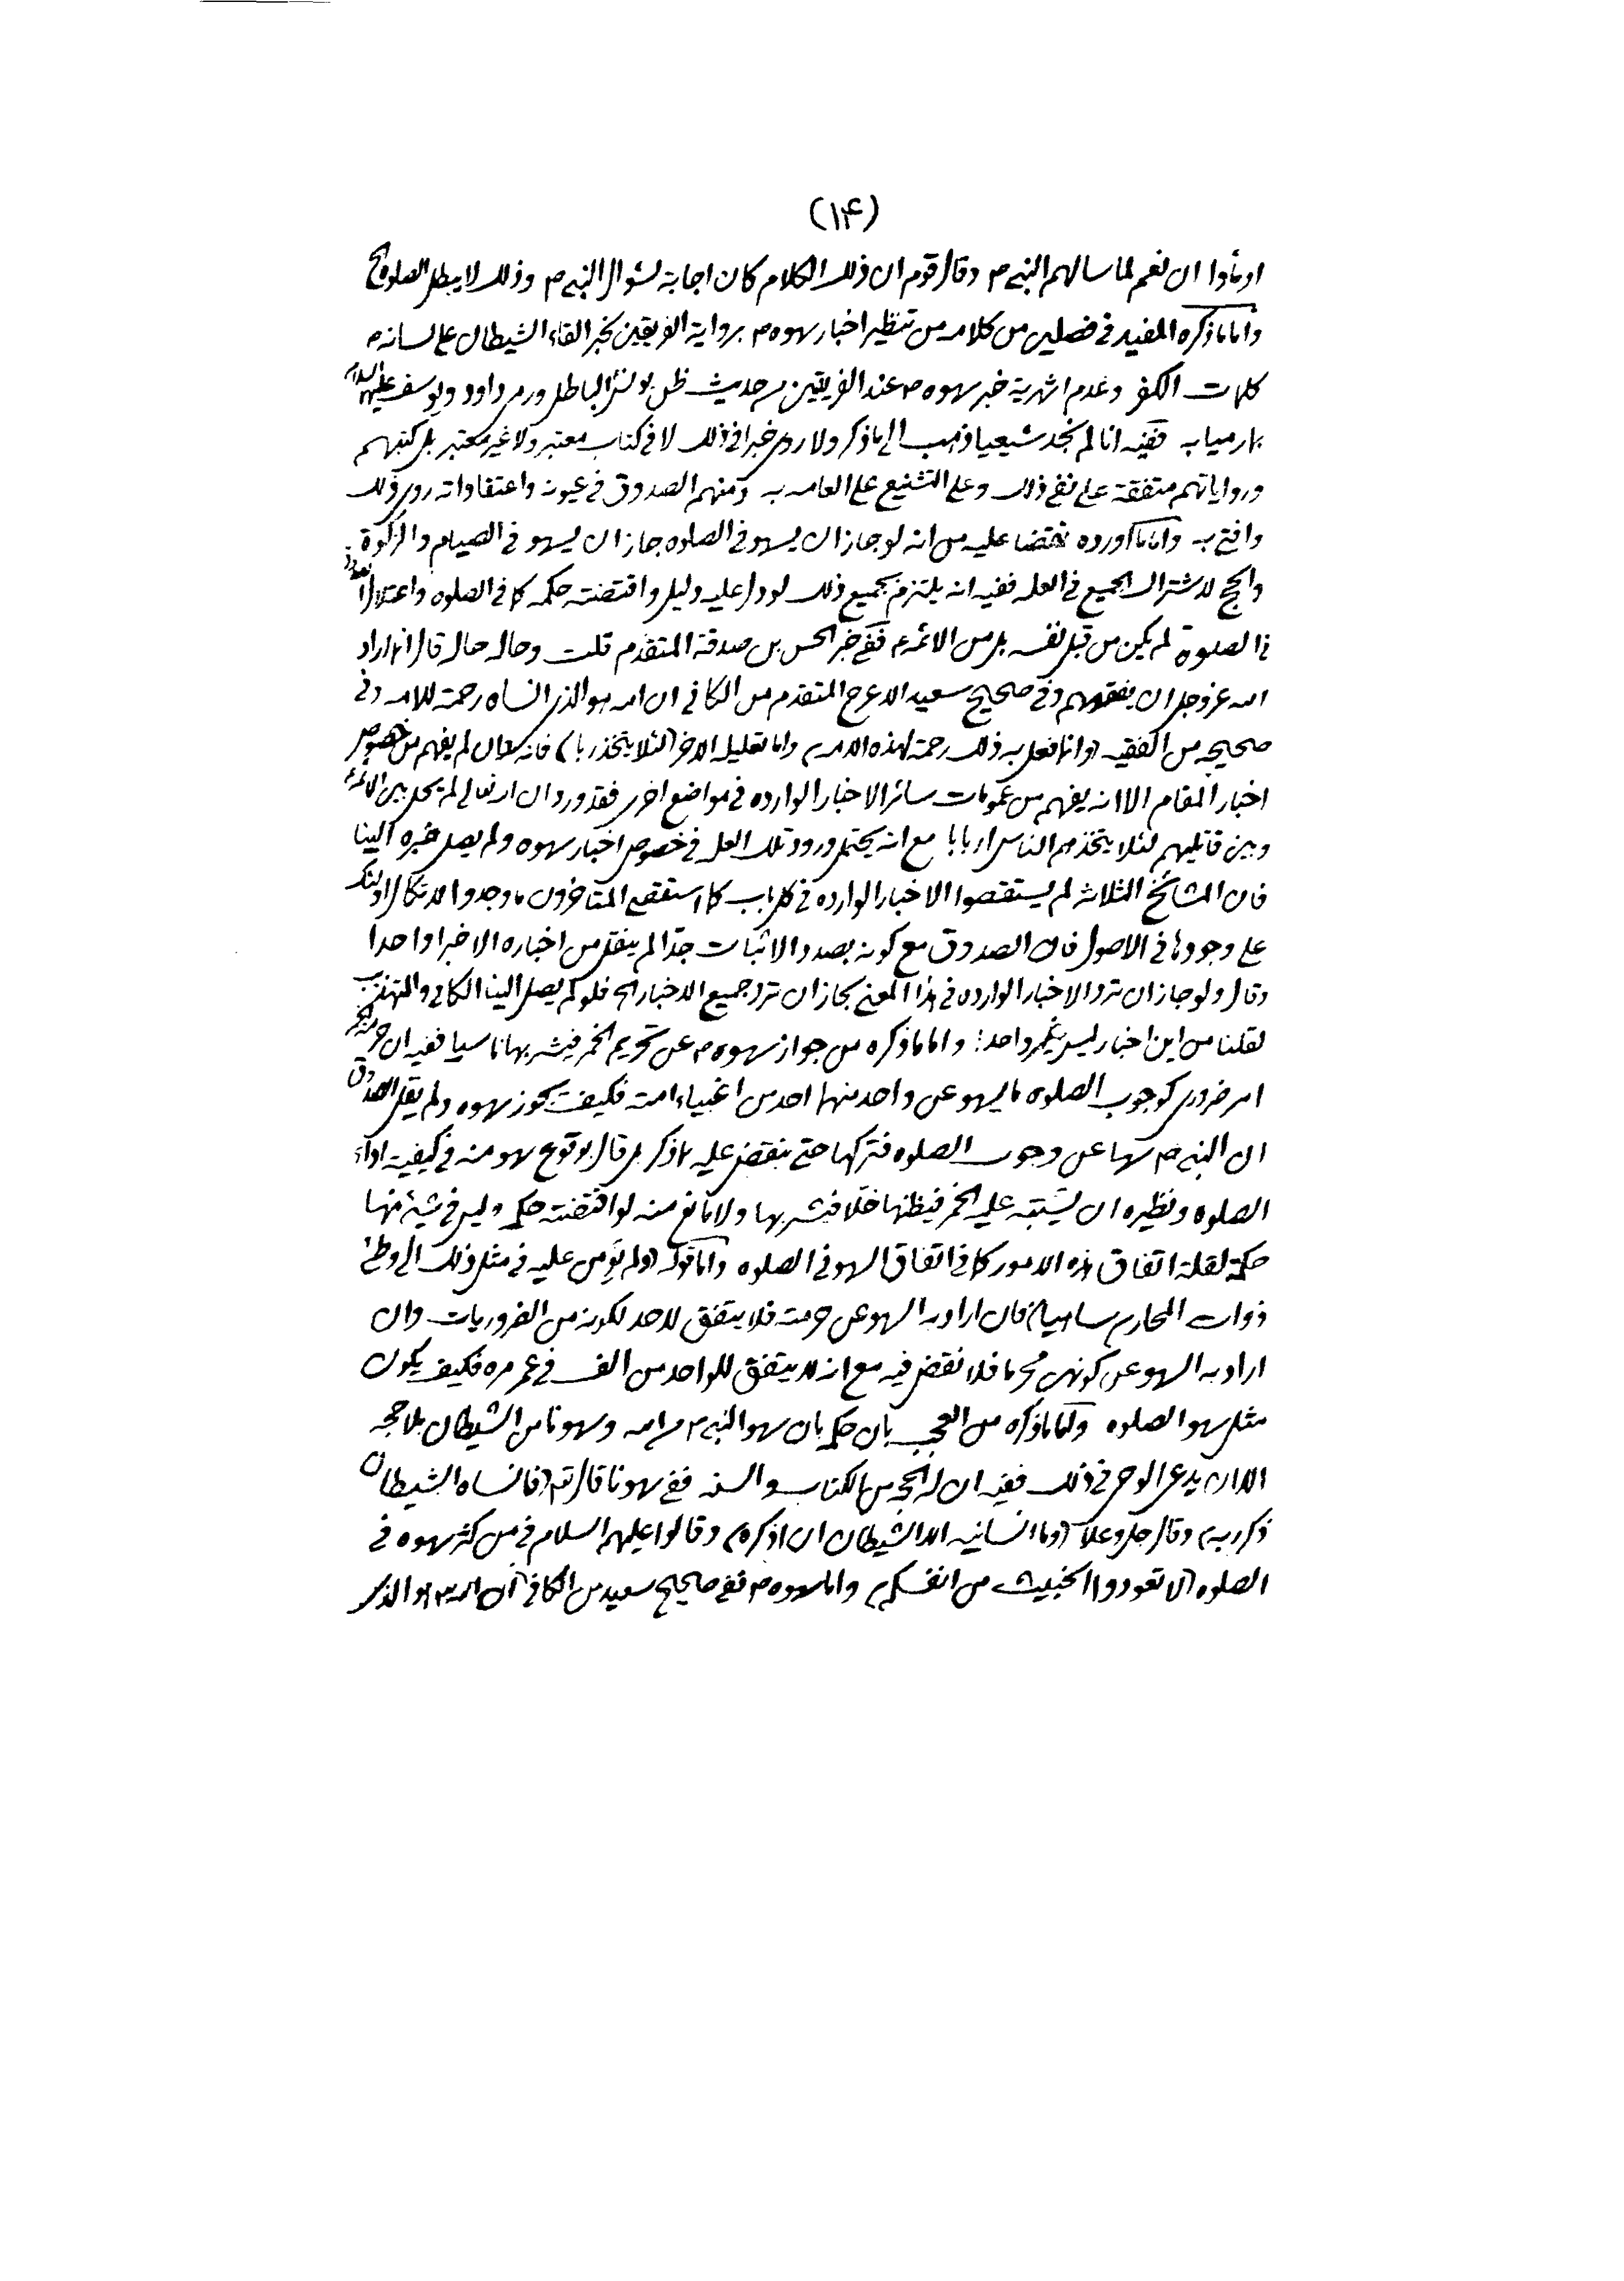 (۱۴)
اومأوا ان نعم لما سالهم النبي ص وقال قوم ان ذلك الكلام كان اجابة لسؤال النبي ص وذلك لا يبطل الصلوة الخ
واما ما ذكره المفيد في فصلين من كلامه من تنظير اخبار سهوه ص برواية الفريقين بخبر القاء الشيطان على لسانه ص
كلمات الكفر وعدم اشهرية خبر سهوه ص عند الفريقين من حديث ظن يونس الباطل ورمى داود ويوسف عليهما السلام
بما رميا به ففيه انا لم نجد شيعيا ذهب الى ما ذكر ولا روى خبرا في ذلك لا في كتاب معتبر ولا غير معتبر بل كتبهم
ورواياتهم متفقة على نفي ذلك وعلى التشنيع على العامه به ومنهم الصدوق في عيونه واعتقاداته روى ذلك
وافتى به واما ما اورده نقضا عليه من انه لو جاز ان يسهو في الصلوه جاز ان يسهو في الصيام والزكوة
والحج لاشتراك الجميع في العله ففيه انه يلتزم بجميع ذلك لو دل عليه دليل واقتضته حكمه كما في الصلوه واعتلال
في الصلوة لم يكن من قبل نفسه بل من الائمه ع ففي خبر الحسن بن صدقة المتقدم قلت وحاله حاله قال انما اراد
الله عز وجل ان يفقههم وفي صحيح سعيد الاعرج المتقدم من الكافي ان الله هو الذي انساه رحمة للامه وفي
صحيحه من الفقيه (وانما فعل به ذلك رحمة لهذه الامه) واما تعليل الاخر (لئلا يتخذ ربا) فانه كان لم يفهم من خصوص
اخبار المقام الا انه يفهم من عمومات سائر الاخبار الوارده في مواضع اخرى فقد ورد ان الله تعالى لم يحل بين الائمة
وبين قاتليهم لئلا يتخذهم الناس اربابا مع انه يحتمل ورود تلك العلة في خصوص اخبار سهوه ولم يصل خبره الينا
فان المشائخ الثلاثه لم يستقصوا الاخبار الوارده في كل باب كما استقصى المتاخرون ما وجدوا لاتكال اولئك
على وجودها في الاصول فان الصدوق مع كونه بصدد الاثبات جدّا لم ينقل من اخباره الا خبرا واحدا
وقال ولو جاز ان ترد الاخبار الوارده في هذا المعنى لجاز ان ترد جميع الاخبار الخ فلو لم يصل الينا الكافي والتهذيب
لقلنا من اين اخبار ليس بخبر واحد؛ واما ما ذكره من جواز سهوه ص عن تحريم الخمر فيشربها ناسيا ففيه ان حرمة الخمر
امر ضروري كوجوب الصلوه ما يسهو عن واحد منهما احد من اغبياء امته فكيف يجوز سهوه ولم يقل الصدوق
ان النبي ص سها عن وجوب الصلوه فتركها حتى ينقض عليه بما ذكر بل قال بوقوع سهو منه في كيفية اداء
الصلوه ونظيره ان يشتبه عليه الخمر فيظنها خلا فيشربها ولا مانع منه لو اقتضته حكمه وليس في شيء منها
حكمة لقلة اتفاق هذه الامور كما في اتفاق السهو في الصلوه واما قوله (ولم يؤمن عليه في مثل ذلك الى وطئ
ذوات المحارم ساهيا) فان اراد به السهو عن حرمته فلا يتفق لاحد لكونه من الضروريات وان
اراد به السهو عن كونهن محرما فلا نقض فيه مع انه لا يتفق للواحد من الف في عمر مره فكيف يكون
مثل سهو الصلوه واما ما ذكره من العجب بان حكمه بان سهو النبي ص من الله وسهونا من الشيطان بلا حجه
الا ان يدعى الوحى في ذلك ففيه ان له الحجه من الكتاب والسنه ففي سهونا قال تعـ (فانساه الشيطان
ذكر ربه) وقال جل وعلا (وما انسانيه الا الشيطان ان اذكره) وقالوا عليهم السلام في من كثر سهوه في
الصلوه (لا تعودوا الخبيث من انفسكم) واما سهوه ص ففي صحيح سعيد من الكافي ان الله هو الذي